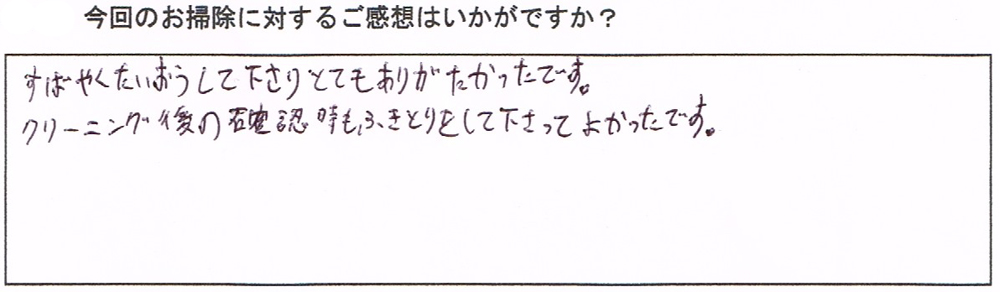 今回のお掃除に対するご感想はいかがですか？
すばやくたいおうして下さりとてもありがたかったです。
クリーニング後の確認時も、ふきとりをして下さってよかったです。